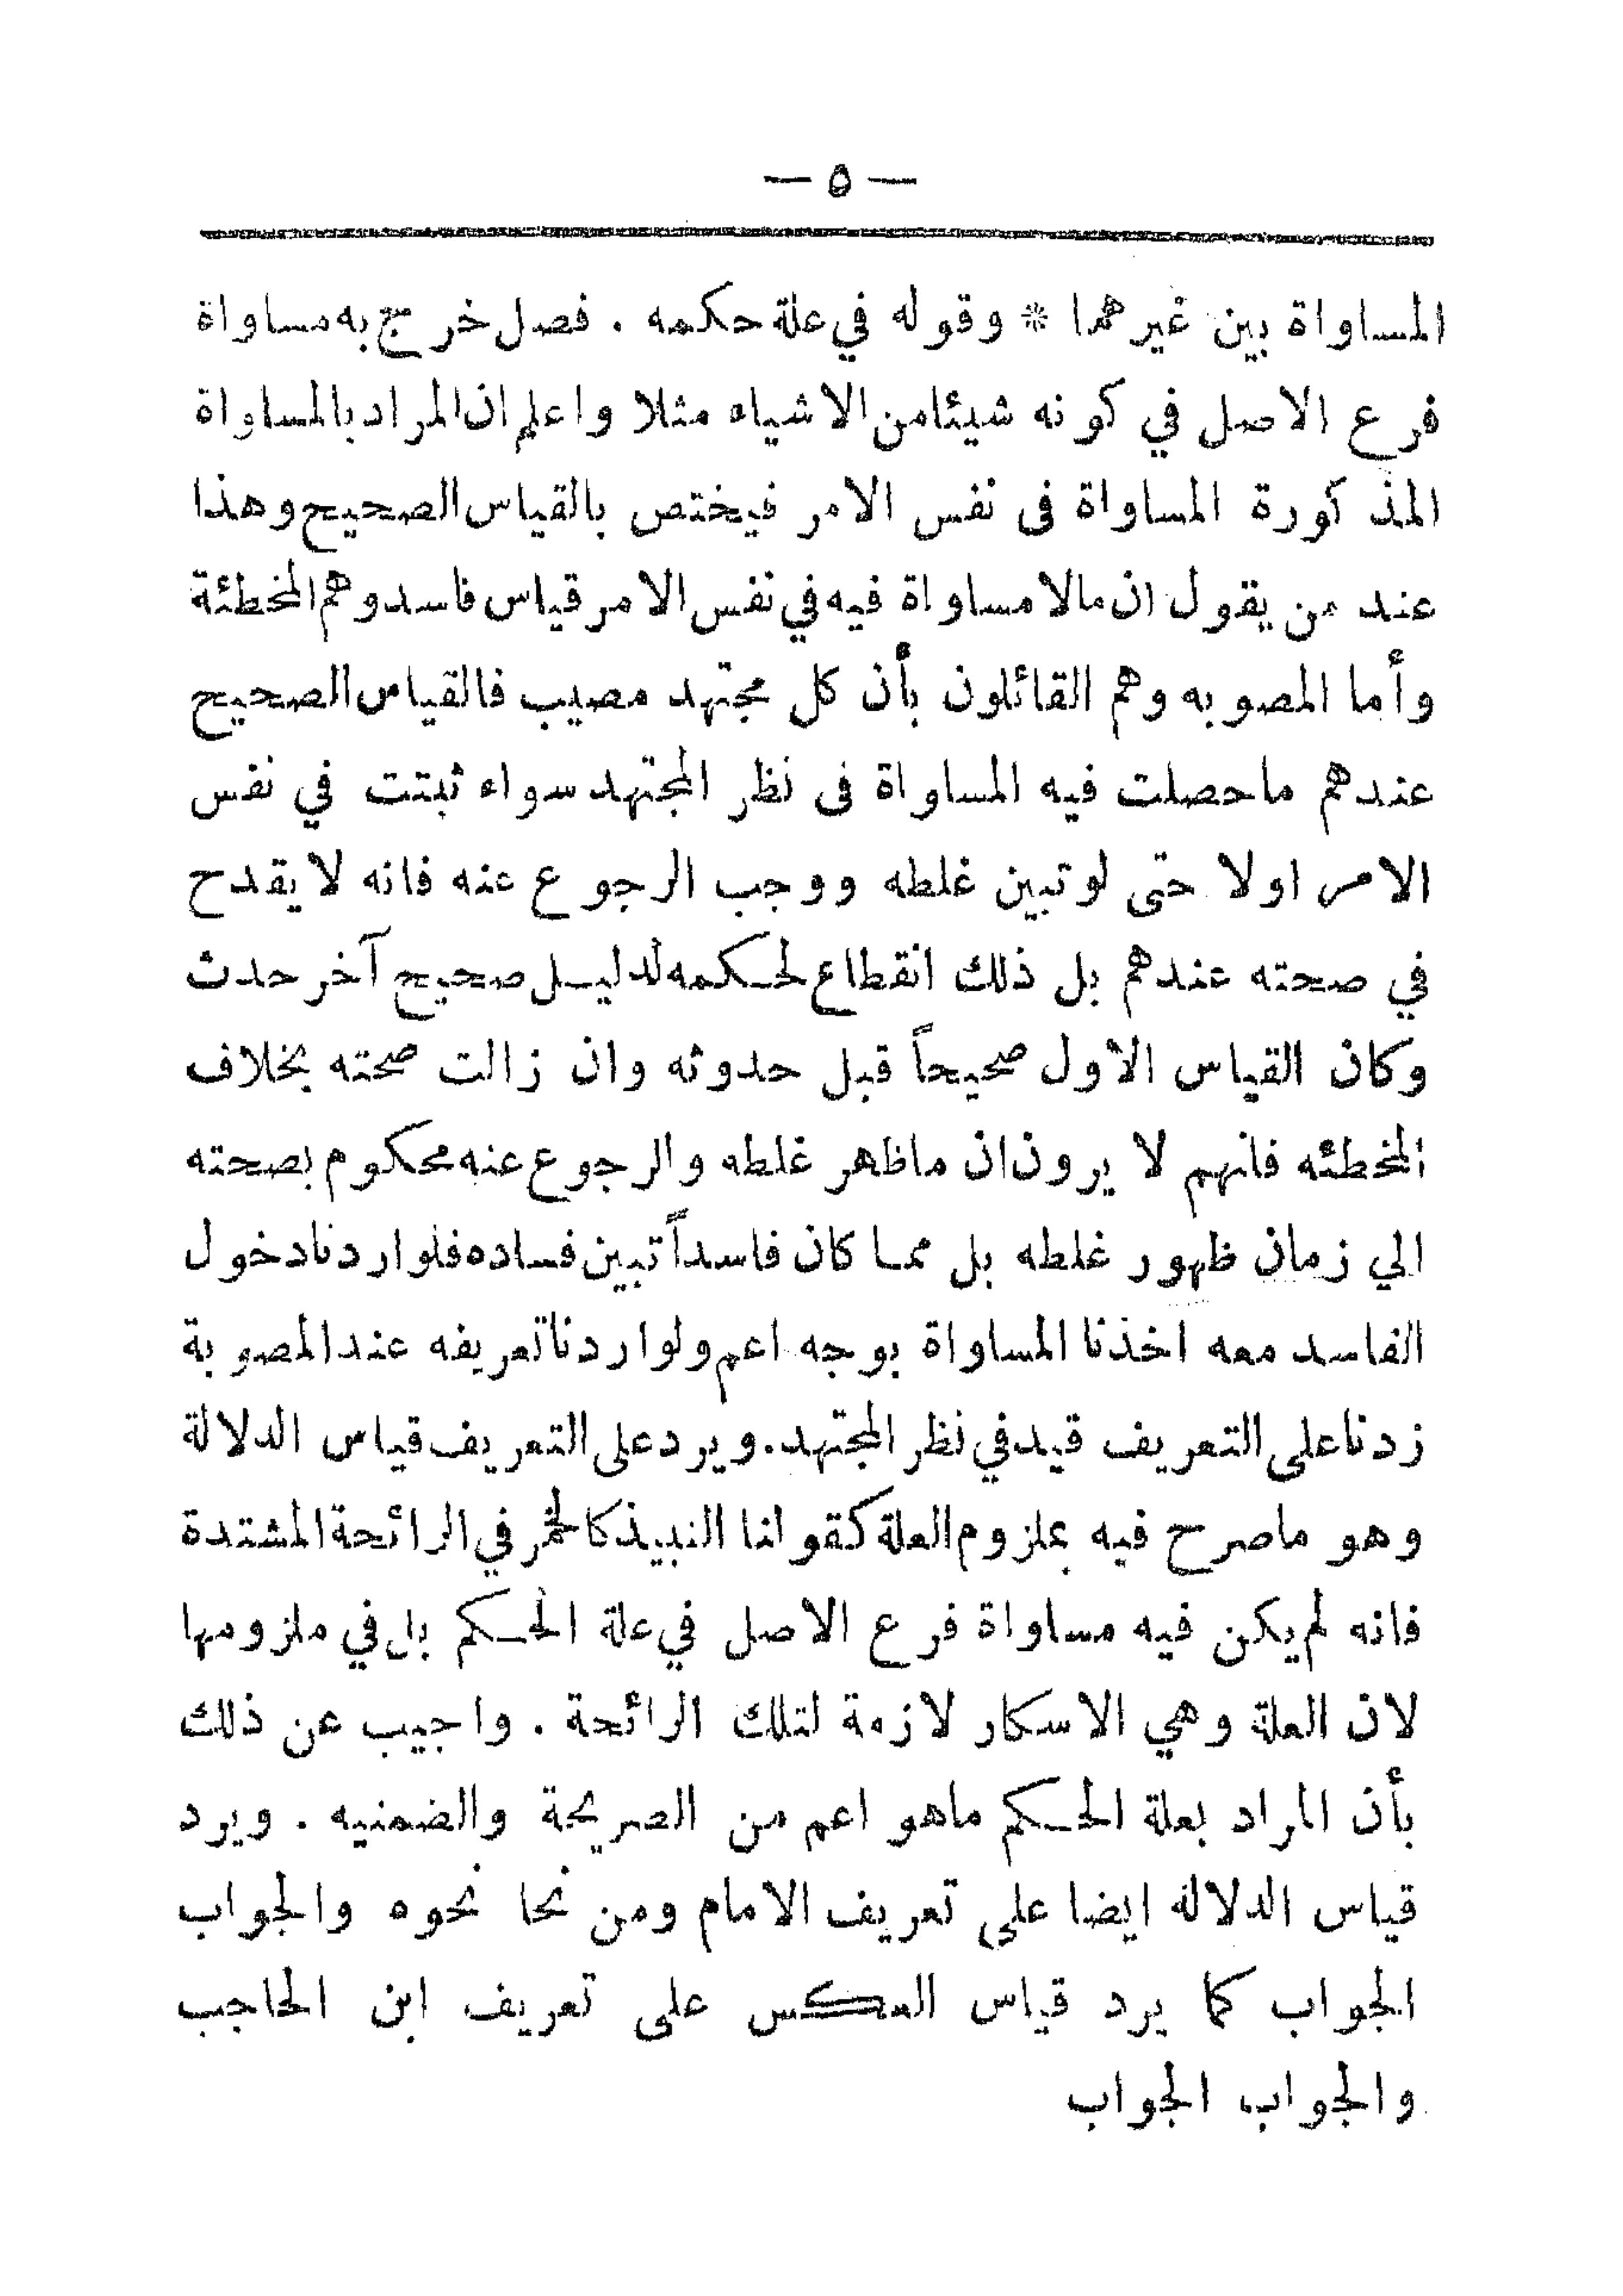 — ٥ —
المساواة بين غيرهما * وقوله في علة حكمه . فصل خرج به مساواة
فرع الاصل في كونه شيئا من الاشياء مثلا واعلم ان المراد بالمساواة
المذكورة المساواة فى نفس الامر فيختص بالقياس الصحيح وهذا
عند من يقول ان مالا مساواة فيه في نفس الامر قياس فاسد وهم المخطئة
وأما المصوبه وهم القائلون بأن كل مجتهد مصيب فالقياس الصحيح
عندهم ماحصلت فيه المساواة فى نظر المجتهد سواء ثبتت في نفس
الامر اولا حتى لو تبين غلطه ووجب الرجوع عنه فانه لا يقدح
في صحته عندهم بل ذلك انقطاع لحكمه لدليل صحيح آخر حدث
وكان القياس الاول صحيحاً قبل حدوثه وان زالت صحته بخلاف
المخطئه فانهم لا يرون ان ماظهر غلطه والرجوع عنه محكوم بصحته
الي زمان ظهور غلطه بل مما كان فاسداً تبين فساده فلو اردنا دخول
الفاسد معه اخذنا المساواة بوجه اعم ولو اردنا تعريفه عند المصوبة
زدنا على التعريف قيد في نظر المجتهد. ويرد على التعريف قياس الدلالة
وهو ماصرح فيه بملزوم العلة كقولنا النبيذ كالخمر في الرائحة المشتدة
فانه لم يكن فيه مساواة فرع الاصل في علة الحكم بل في ملزومها
لان العلة وهي الاسكار لازمة لتلك الرائحة . واجيب عن ذلك
بأن المراد بعلة الحكم ماهو اعم من الصريحة والضمنيه . ويرد
قياس الدلالة ايضا على تعريف الامام ومن نحا نحوه والجواب
الجواب كما يرد قياس العكس على تعريف ابن الحاجب
والجواب الجواب